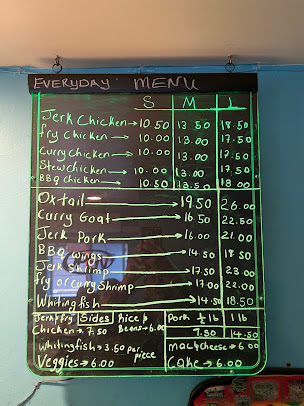 EVERYDAY MENU
S M L
Jerk Chicken → 10.50 13.50 18.50
fry chicken → 10.00 13.00 17.50
Curry chicken → 10.00 13.00 17.50
Stew chicken → 10.00 13.00 17.50
BBQ chicken → 10.50 13.50 18.00
Oxtail → 19.50 26.00
Curry Goat → 16.50 22.50
Jerk Pork → 16.00 21.00
BBQ wings → 14.50 18.50
Jerk Shrimp → 17.50 23.00
fry or curry Shrimp → 17.00 22.00
Whiting fish → 14.50 18.50
Jerk/fry Sides Rice &
Chicken → 7.50 Beans → 6.00
Whiting fish → 3.50 per. piece
Veggies → 6.00
Pork ½ lb 1 lb
7.50 14.50
mac & cheese → 6.00
Cake → 6.00